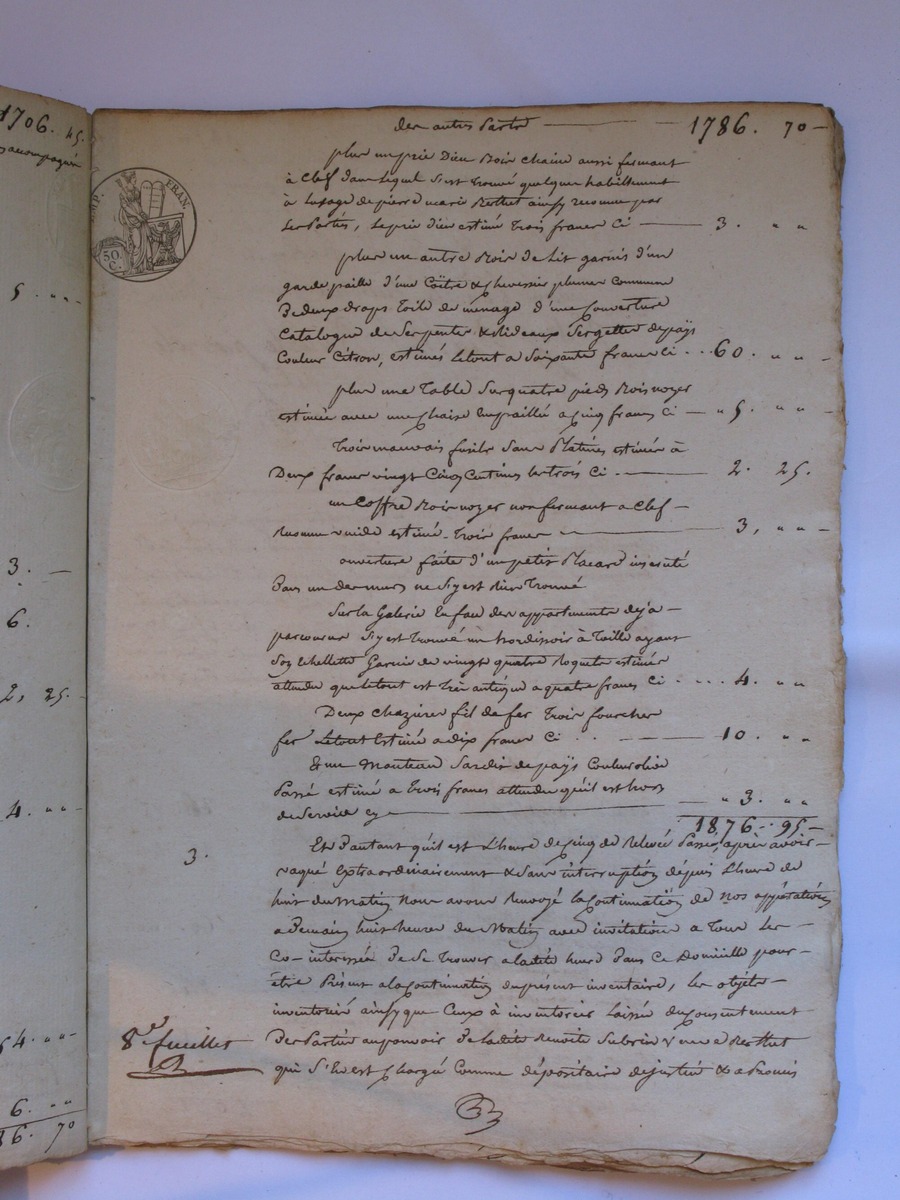 1706. 45.
accompagné
5. " "
3. —
6.
2, 25.
4. " "
54. " "
6. " "
86. 70
IMP. FRAN.
50. C.
des autres Parts — 1786. 70 —
plus un prie Dieu Noir chaine aussi fermant
à Clef dans lequel s'est trouvé quelques habillements
à l'usage de pierre marie Berthet ainsy reconnu par
les Parties, le prie dieu estimé Trois francs Ci — 3. " "
plus un autre Noir de Lit garnis d'un
garde paille d'une Coitre & Chevessier plumes commune
De deux draps toile de ménage d'une Couverture
Catalogue de Serpente & Rideaux Sergette de pays
Couleur Citron, estimés le tout a Soixante francs Ci . . . 60. " " —
plus une Table Sur quatre pieds Bois noyer
estimée avec une Chaise Empaillé a Cinq francs Ci — " 5. " " —
Trois mauvais fusils Sans Platines estimés à
Deux francs vingt Cinq Centimes les trois Ci . — 2. 25.
un Coffre Bois noyer non fermant a Clef —
reconnu vuide estimé Trois francs — 3, " " —
ouverture faite d'un petit Placard incrusté
Dans un des murs ne S'y est Rien Trouvé
Sur la Galerie En face des appartements deja —
parcourus S'y est Trouvé un hordissoir à Toille ayant
Son Echellette Garnie de vingt quatre Roquets estimés
attendu que le tout est très antique a quatre francs Ci . . . . 4. " "
Deux Chazieres fil de fer Trois fourches
fer Le tout Estimé a dix francs Ci . . — 10. " "
Et un Manteau Sardis de pays Couleur olive
Passé estimé a Trois francs attendu qu'il est hors
de Service Cy — " 3. " "
1876. 95 —
3.
Et D'autant qu'il est L'heure de Cinq de Relevée Passée, après avoir —
vaqué Extraordinairement & Sans interruption depuis L'heure de
huit du Matin Nous avons Renvoyé la Continuation de nos opérations
a Demain huit heures du Matin avec invitation a Tous les —
Co-interessés De Se Trouver a ladite heure Dans ce Domicille pour —
être Présent a la Continuation du présent inventaire, les objets —
inventoriés ainsy que Ceux à inventorier laissés du Consentement
Des Parties au pouvoir de ladite Benoite Subrin veuve Berthet
qui S'En est Chargé Comme dépositaire de justice & a Promis
8e feuillet